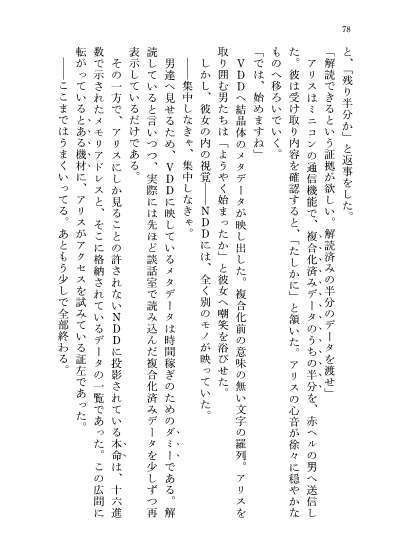 78
と、「残り半分か」と返事をした。
「解読できるという証拠が欲しい。解読済みの半分のデータを渡せ」
アリスはミニコンの通信機能で、複合化済みデータのうちの半分を、赤ヘルの男へ送信し
た。彼は受け取り内容を確認すると、「たしかに」と頷いた。アリスの心音が徐々に穏やかな
ものへ移ろいでいく。
「では、始めますね」
VDDへ結晶体のメタデータが映し出した。複合化前の意味の無い文字の羅列。アリスを
取り囲む男たちは「ようやく始まったか」と彼女へ嘲笑を浴びせた。
しかし、彼女の内の視覚――NDDには、全く別のモノが映っていた。
――集中しなきゃ、集中しなきゃ。
男達へ見せるため、VDDに映しているメタデータは時間稼ぎのためのダミーである。解
読していると言いつつ、実際には先ほど談話室で読み込んだ複合化済みデータを少しずつ再
表示しているだけである。
その一方で、アリスにしか見ることの許されないNDDに投影されている本命は、十六進
数で示されたメモリアドレスと、そこに格納されているデータの一覧であった。この広間に
転がっているとある機材に、アリスがアクセスを試みている証左であった。
――ここまではうまくいってる。あともう少しで全部終わる。